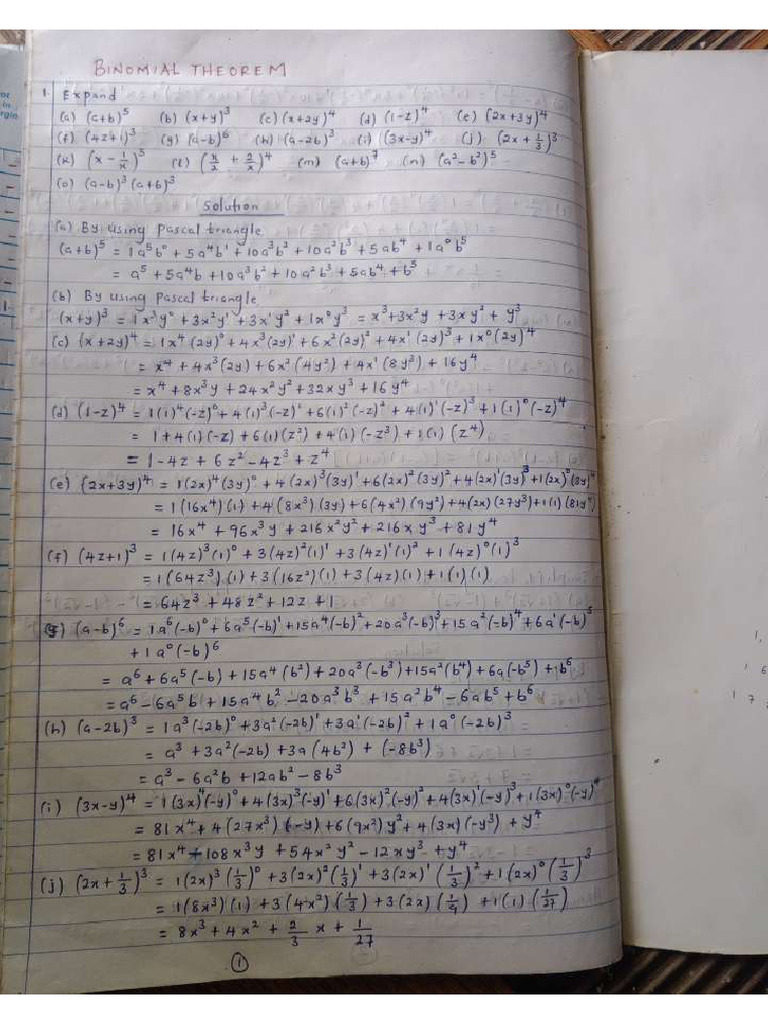 BINOMIAL THEOREM
1. Expand
(a) (a+b)⁵ (b) (x+y)³ (c) (x+2y)⁴ (d) (1-z)⁴ (e) (2x+3y)⁴
(f) (4z+1)³ (g) (a-b)⁶ (h) (a-2b)³ (i) (3x-y)⁴ (j) (2x+1/3)³
(k) (x-1/x)⁵ (l) (x/2+2/x)⁴ (m) (a+b)⁷ (n) (a²-b²)⁵
(o) (a-b)³(a+b)³
Solution
(a) By using pascal triangle
(a+b)⁵ = 1a⁵b⁰ + 5a⁴b¹ + 10a³b² + 10a²b³ + 5ab⁴ + 1a⁰b⁵
= a⁵ + 5a⁴b + 10a³b² + 10a²b³ + 5ab⁴ + b⁵
(b) By using pascal triangle
(x+y)³ = 1x³y⁰ + 3x²y¹ + 3x¹y² + 1x⁰y³ = x³+3x²y+3xy²+y³
(c) (x+2y)⁴ = 1x⁴(2y)⁰ + 4x³(2y)¹ + 6x²(2y)² + 4x¹(2y)³ + 1x⁰(2y)⁴
= x⁴ + 4x³(2y) + 6x²(4y²) + 4x¹(8y³) + 16y⁴
= x⁴ + 8x³y + 24x²y² + 32xy³ + 16y⁴
(d) (1-z)⁴ = 1(1)⁴(-z)⁰ + 4(1)³(-z)¹ + 6(1)²(-z)² + 4(1)¹(-z)³ + 1(1)⁰(-z)⁴
= 1 + 4(1)(-z) + 6(1)(z²) + 4(1)(-z³) + 1(1)(z⁴)
= 1 - 4z + 6z² - 4z³ + z⁴
(e) (2x+3y)⁴ = 1(2x)⁴(3y)⁰ + 4(2x)³(3y)¹ + 6(2x)²(3y)² + 4(2x)¹(3y)³ + 1(2x)⁰(3y)⁴
= 1(16x⁴)(1) + 4(8x³)(3y) + 6(4x²)(9y²) + 4(2x)(27y³) + 1(1)(81y⁴)
= 16x⁴ + 96x³y + 216x²y² + 216xy³ + 81y⁴
(f) (4z+1)³ = 1(4z)³(1)⁰ + 3(4z)²(1)¹ + 3(4z)¹(1)² + 1(4z)⁰(1)³
= 1(64z³)(1) + 3(16z²)(1) + 3(4z)(1) + 1(1)(1)
= 64z³ + 48z² + 12z + 1
(g) (a-b)⁶ = 1a⁶(-b)⁰ + 6a⁵(-b)¹ + 15a⁴(-b)² + 20a³(-b)³ + 15a²(-b)⁴ + 6a¹(-b)⁵
+ 1a⁰(-b)⁶
= a⁶ + 6a⁵(-b) + 15a⁴(b²) + 20a³(-b³) + 15a²(b⁴) + 6a(-b⁵) + b⁶
= a⁶ - 6a⁵b + 15a⁴b² - 20a³b³ + 15a²b⁴ - 6ab⁵ + b⁶
(h) (a-2b)³ = 1a³(-2b)⁰ + 3a²(-2b)¹ + 3a¹(-2b)² + 1a⁰(-2b)³
= a³ + 3a²(-2b) + 3a(4b²) + (-8b³)
= a³ - 6a²b + 12ab² - 8b³
(i) (3x-y)⁴ = 1(3x)⁴(-y)⁰ + 4(3x)³(-y)¹ + 6(3x)²(-y)² + 4(3x)¹(-y)³ + 1(3x)⁰(-y)⁴
= 81x⁴ + 4(27x³)(-y) + 6(9x²)y² + 4(3x)(-y³) + y⁴
= 81x⁴ - 108x³y + 54x²y² - 12xy³ + y⁴
(j) (2x+1/3)³ = 1(2x)³(1/3)⁰ + 3(2x)²(1/3)¹ + 3(2x)¹(1/3)² + 1(2x)⁰(1/3)³
= 1(8x³)(1) + 3(4x²)(1/3) + 3(2x)(1/9) + 1(1)(1/27)
= 8x³ + 4x² + 2/3 x + 1/27
1